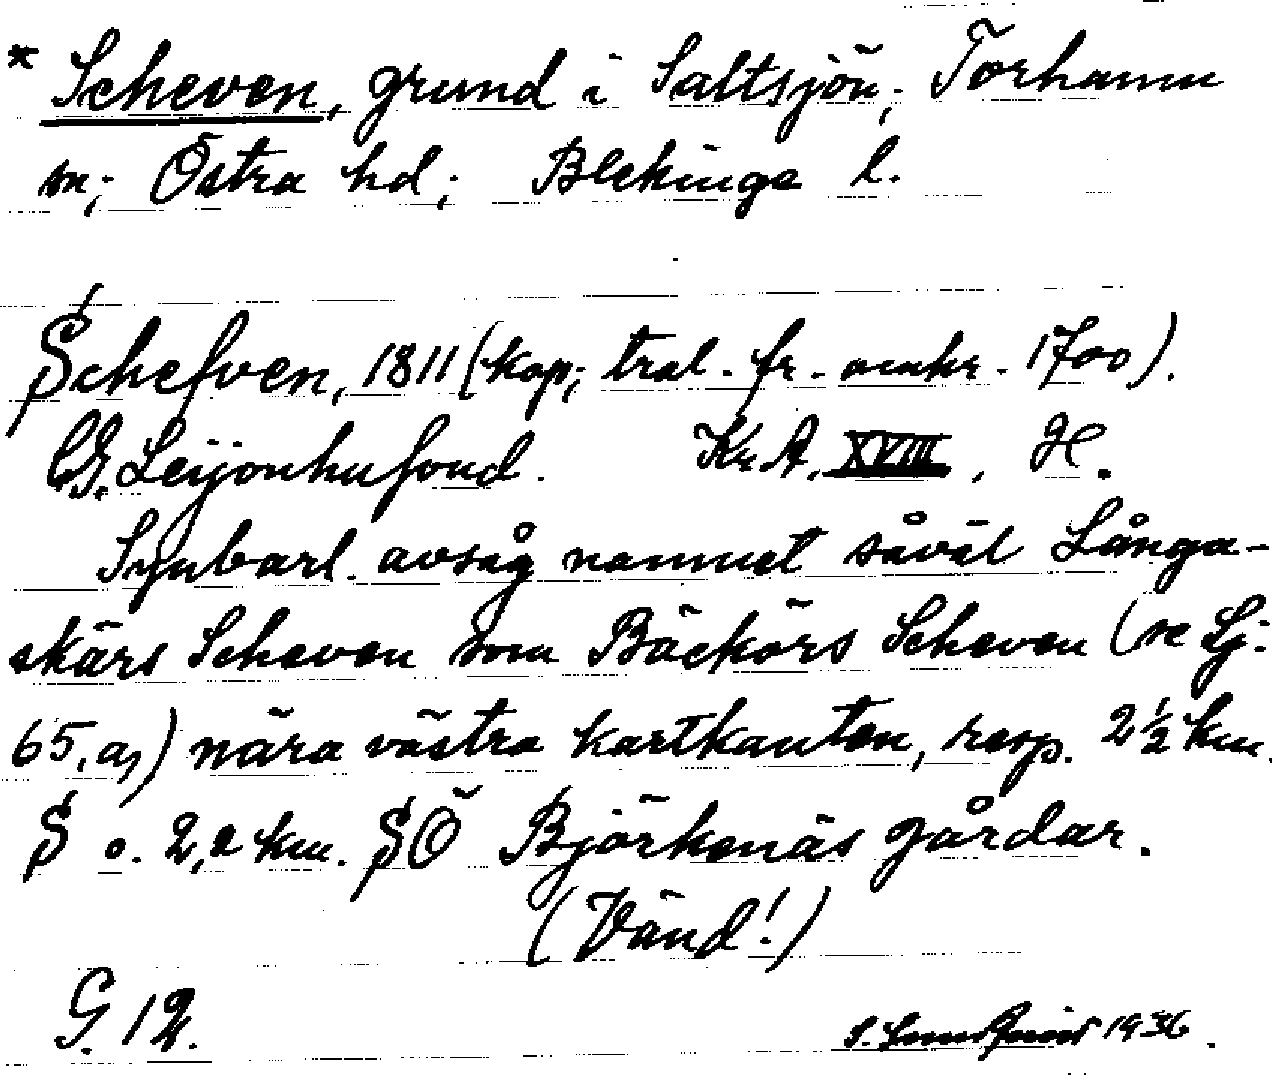 * Scheven, grund i Saltsjön; Torhamn
sn; Östra hd; Blekinge l.
Schefven, 1811 (kop; tral. fr. omkr. 1700).
CG. Leijonhufvud. Kr.A. XVIII, H.
Synbarl. avsåg namnet såväl Långa-
skärs Scheven som Bäckörs Scheven (se Sj.
65,a,) nära västra kartkanten, resp. 2 1/2 km.
S o. 2,2 km. SÖ Björkenäs gårdar.
(Vänd!)
G. 12. 1936.